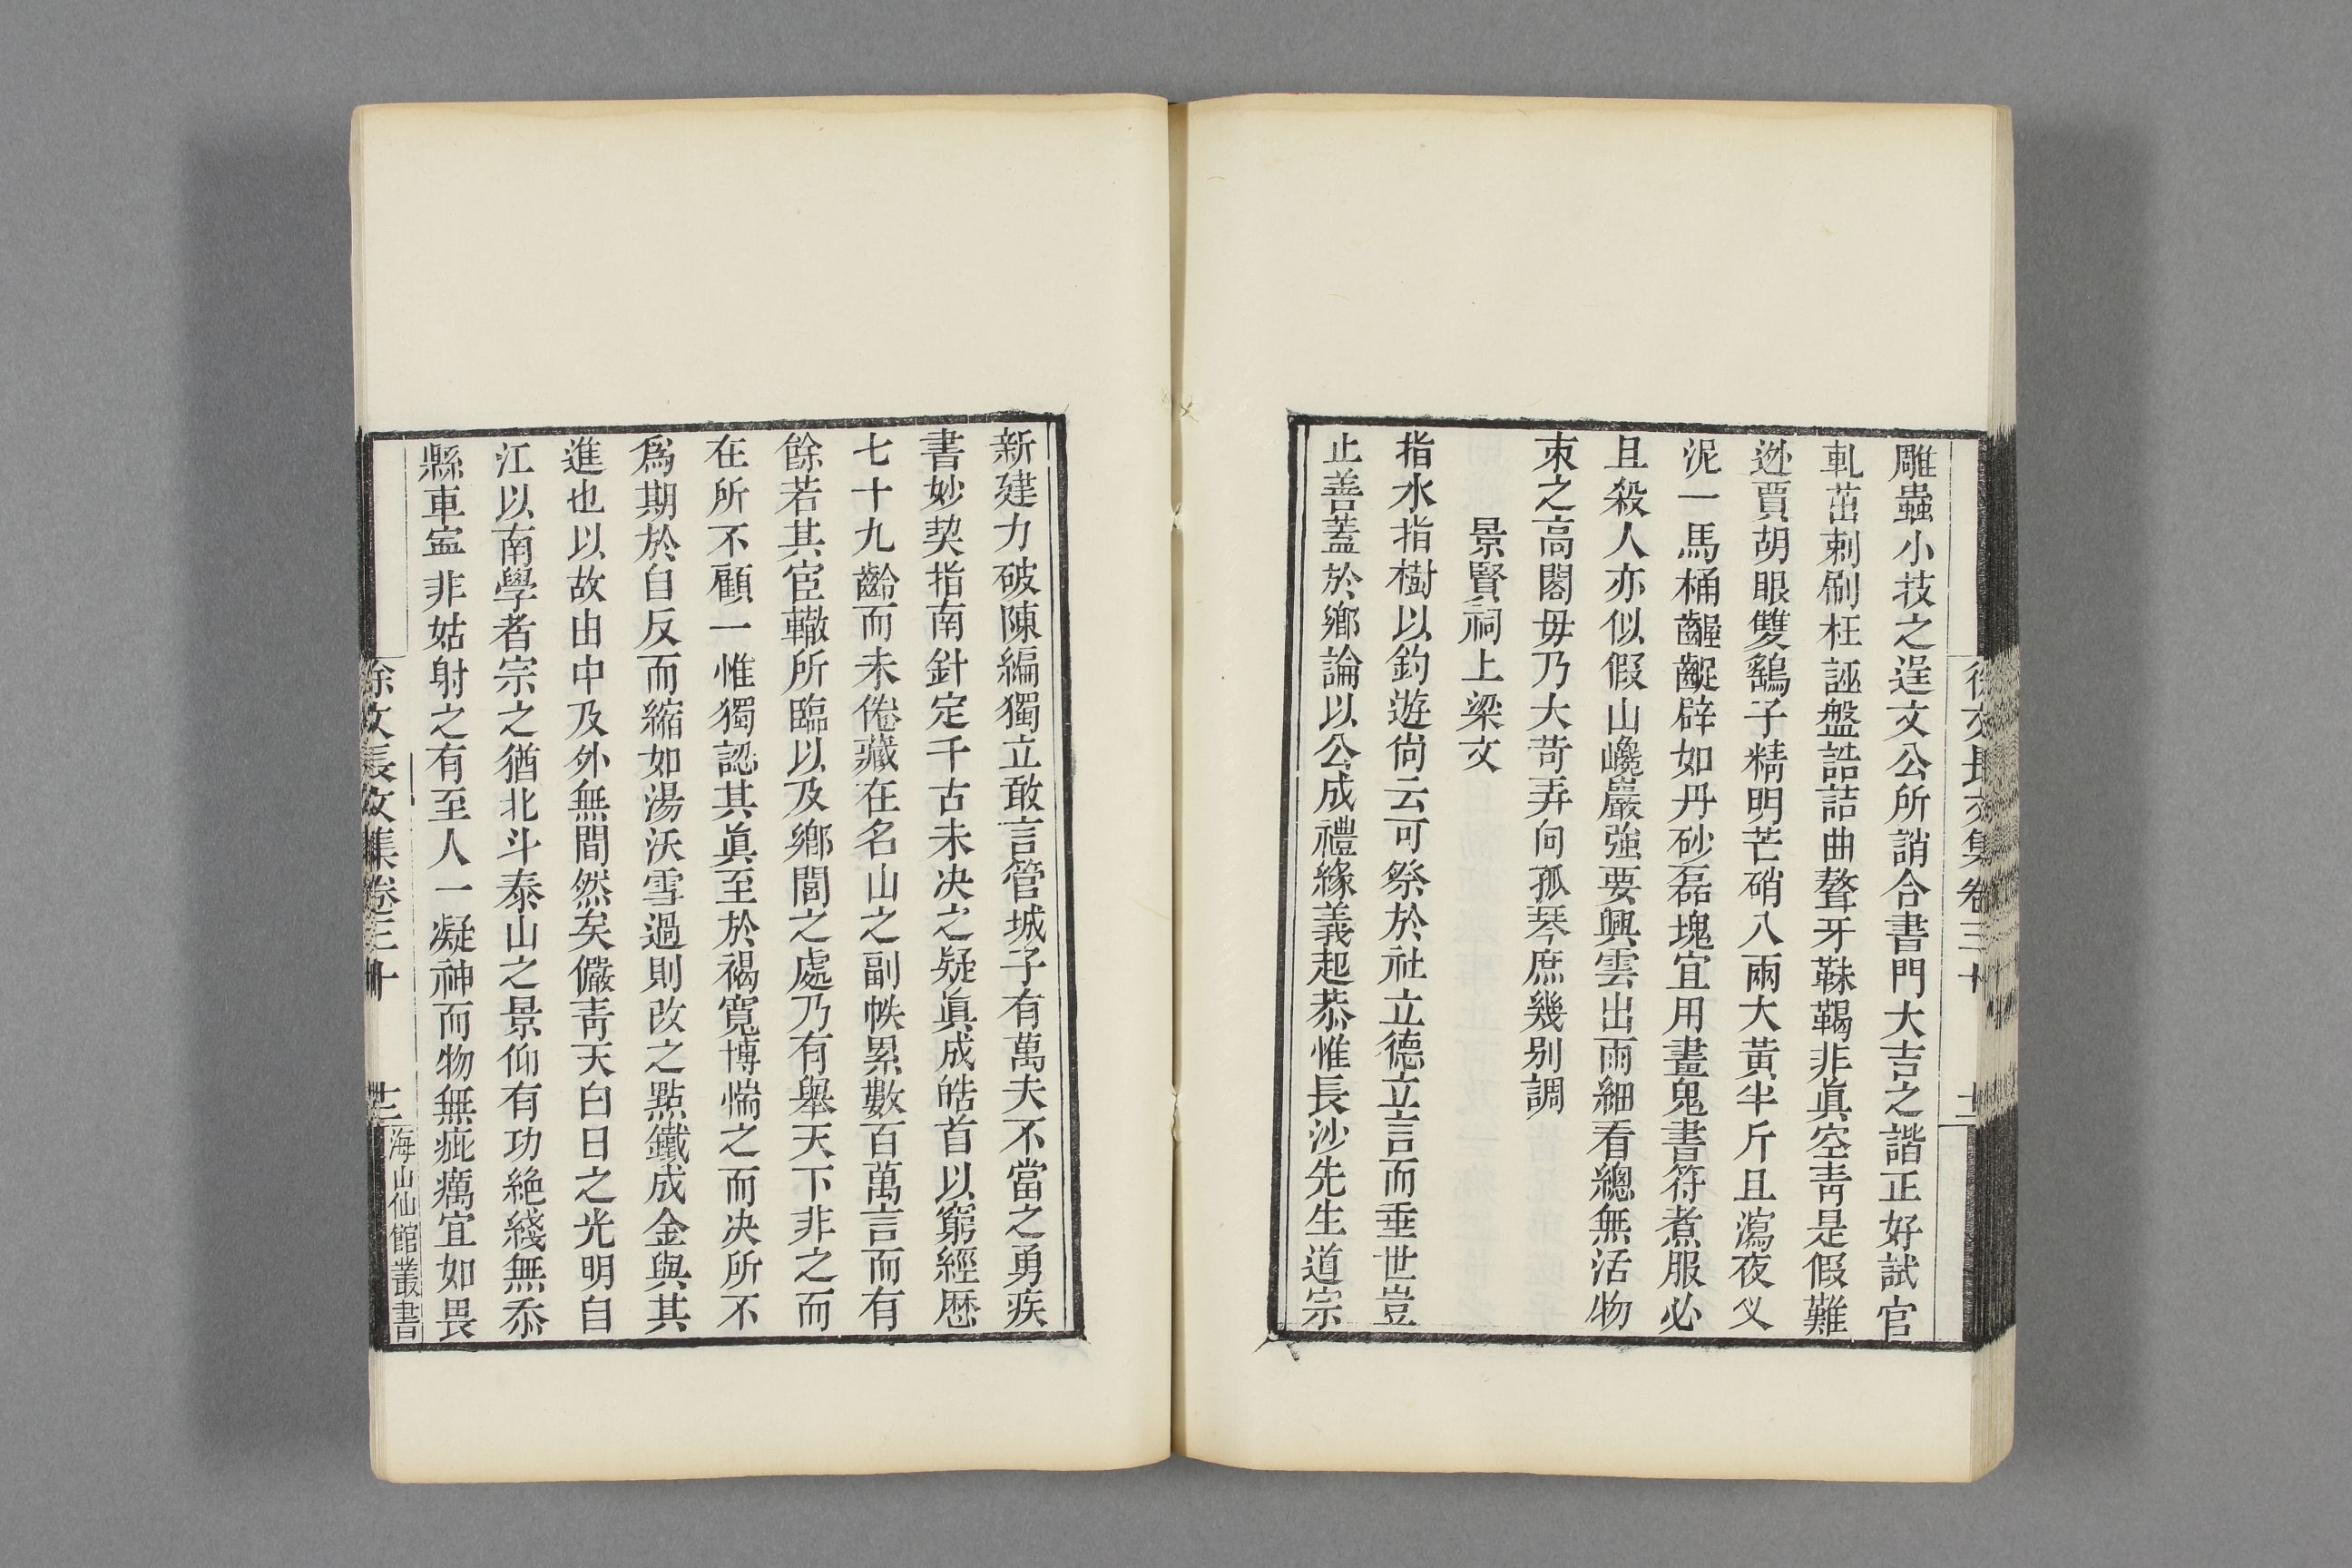 徐文長文集卷三十
十二
雕蟲小技之逞文公所誚合書門大吉之諧正好試官
軋茁剌刷枉誣盤誥詰曲聱牙靺鞨非眞空靑是假難
逊賈胡眼雙鷂子精明芒硝八兩大黃半斤且瀉夜义
泥一馬桶齷齪辟如丹砂磊塊宜用畫鬼書符煮服必
且殺人亦似假山巉巖強要興雲出雨細看總無活物
束之高閣毋乃大苛弄向孤琴庶幾别調
景賢祠上梁文
指水指樹以釣遊尙云可祭於社立德立言而垂世豈
止善蓋於鄉論以公成禮緣義起恭惟長沙先生道宗
新建力破陳編獨立敢言管城子有萬夫不當之勇疾
書妙契指南針定千古未决之疑眞成皓首以窮經歷
七十九齡而未倦藏在名山之副帙累數百萬言而有
餘若其宦轍所臨以及鄉閭之處乃有舉天下非之而
在所不顧一惟獨認其眞至於褐寬博惴之而决所不
爲期於自反而縮如湯沃雪過則改之點鐵成金與其
進也以故由中及外無間然矣儼靑天白日之光明自
江以南學者宗之猶北斗泰山之景仰有功絶綫無忝
縣車寍非姑射之有至人一凝神而物無疵癘宜如畏
徐文長文集卷三十
十二
海山仙館叢書